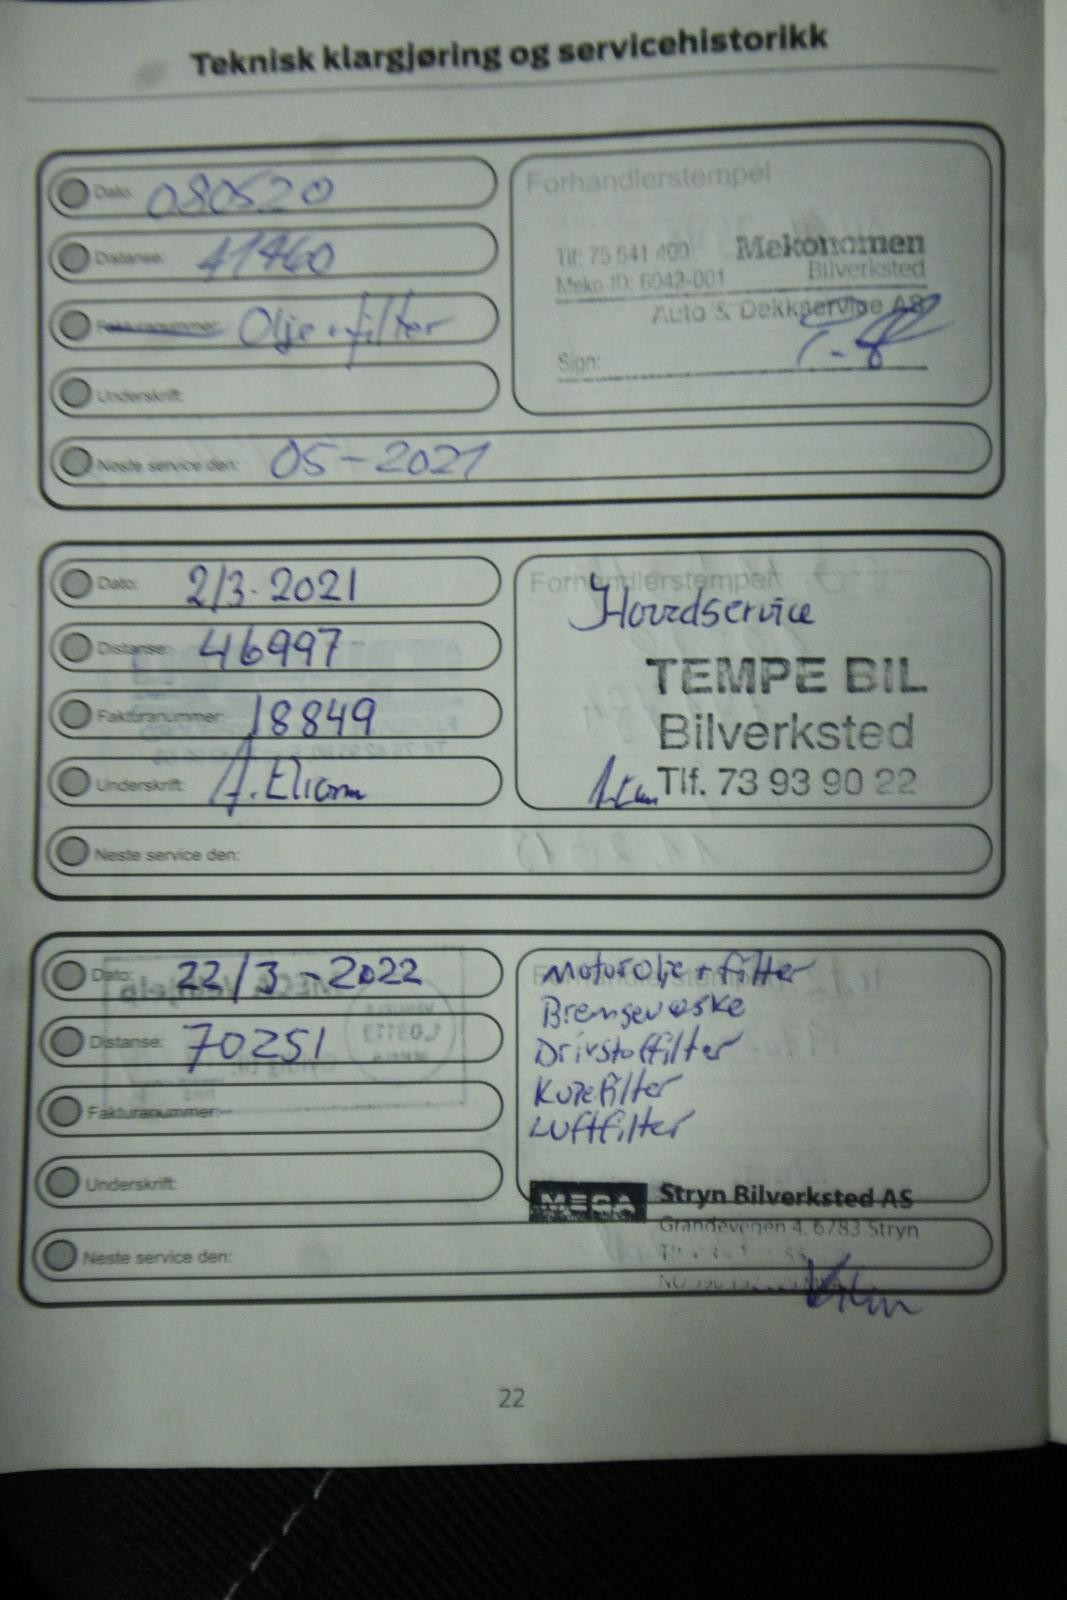 Teknisk klargjøring og servicehistorikk
Dato: 080520
Distanse: 41460
Fakturanummer: Olje + filter
Underskrift:
Neste service den: 05-2021
Forhandlerstempel
Tlf: 75 541 400 Mekonomen
Meko-ID: 6042-001 Bilverksted
Auto & Dekkservice AS
Sign:
Dato: 2/3-2021
Distanse: 46997
Fakturanummer: 18849
Underskrift:
Neste service den:
Forhandlerstempel
Hovedservice
TEMPE BIL
Bilverksted
Tlf. 73 93 90 22
Dato: 22/3-2022
Distanse: 70251
Fakturanummer:
Underskrift:
Neste service den:
Forhandlerstempel
Motorolje + filter
Bremsevæske
Drivstoffilter
Kupefilter
Luftfilter
MECA Stryn Bilverksted AS
Grandevegen 4, 6783 Stryn
22